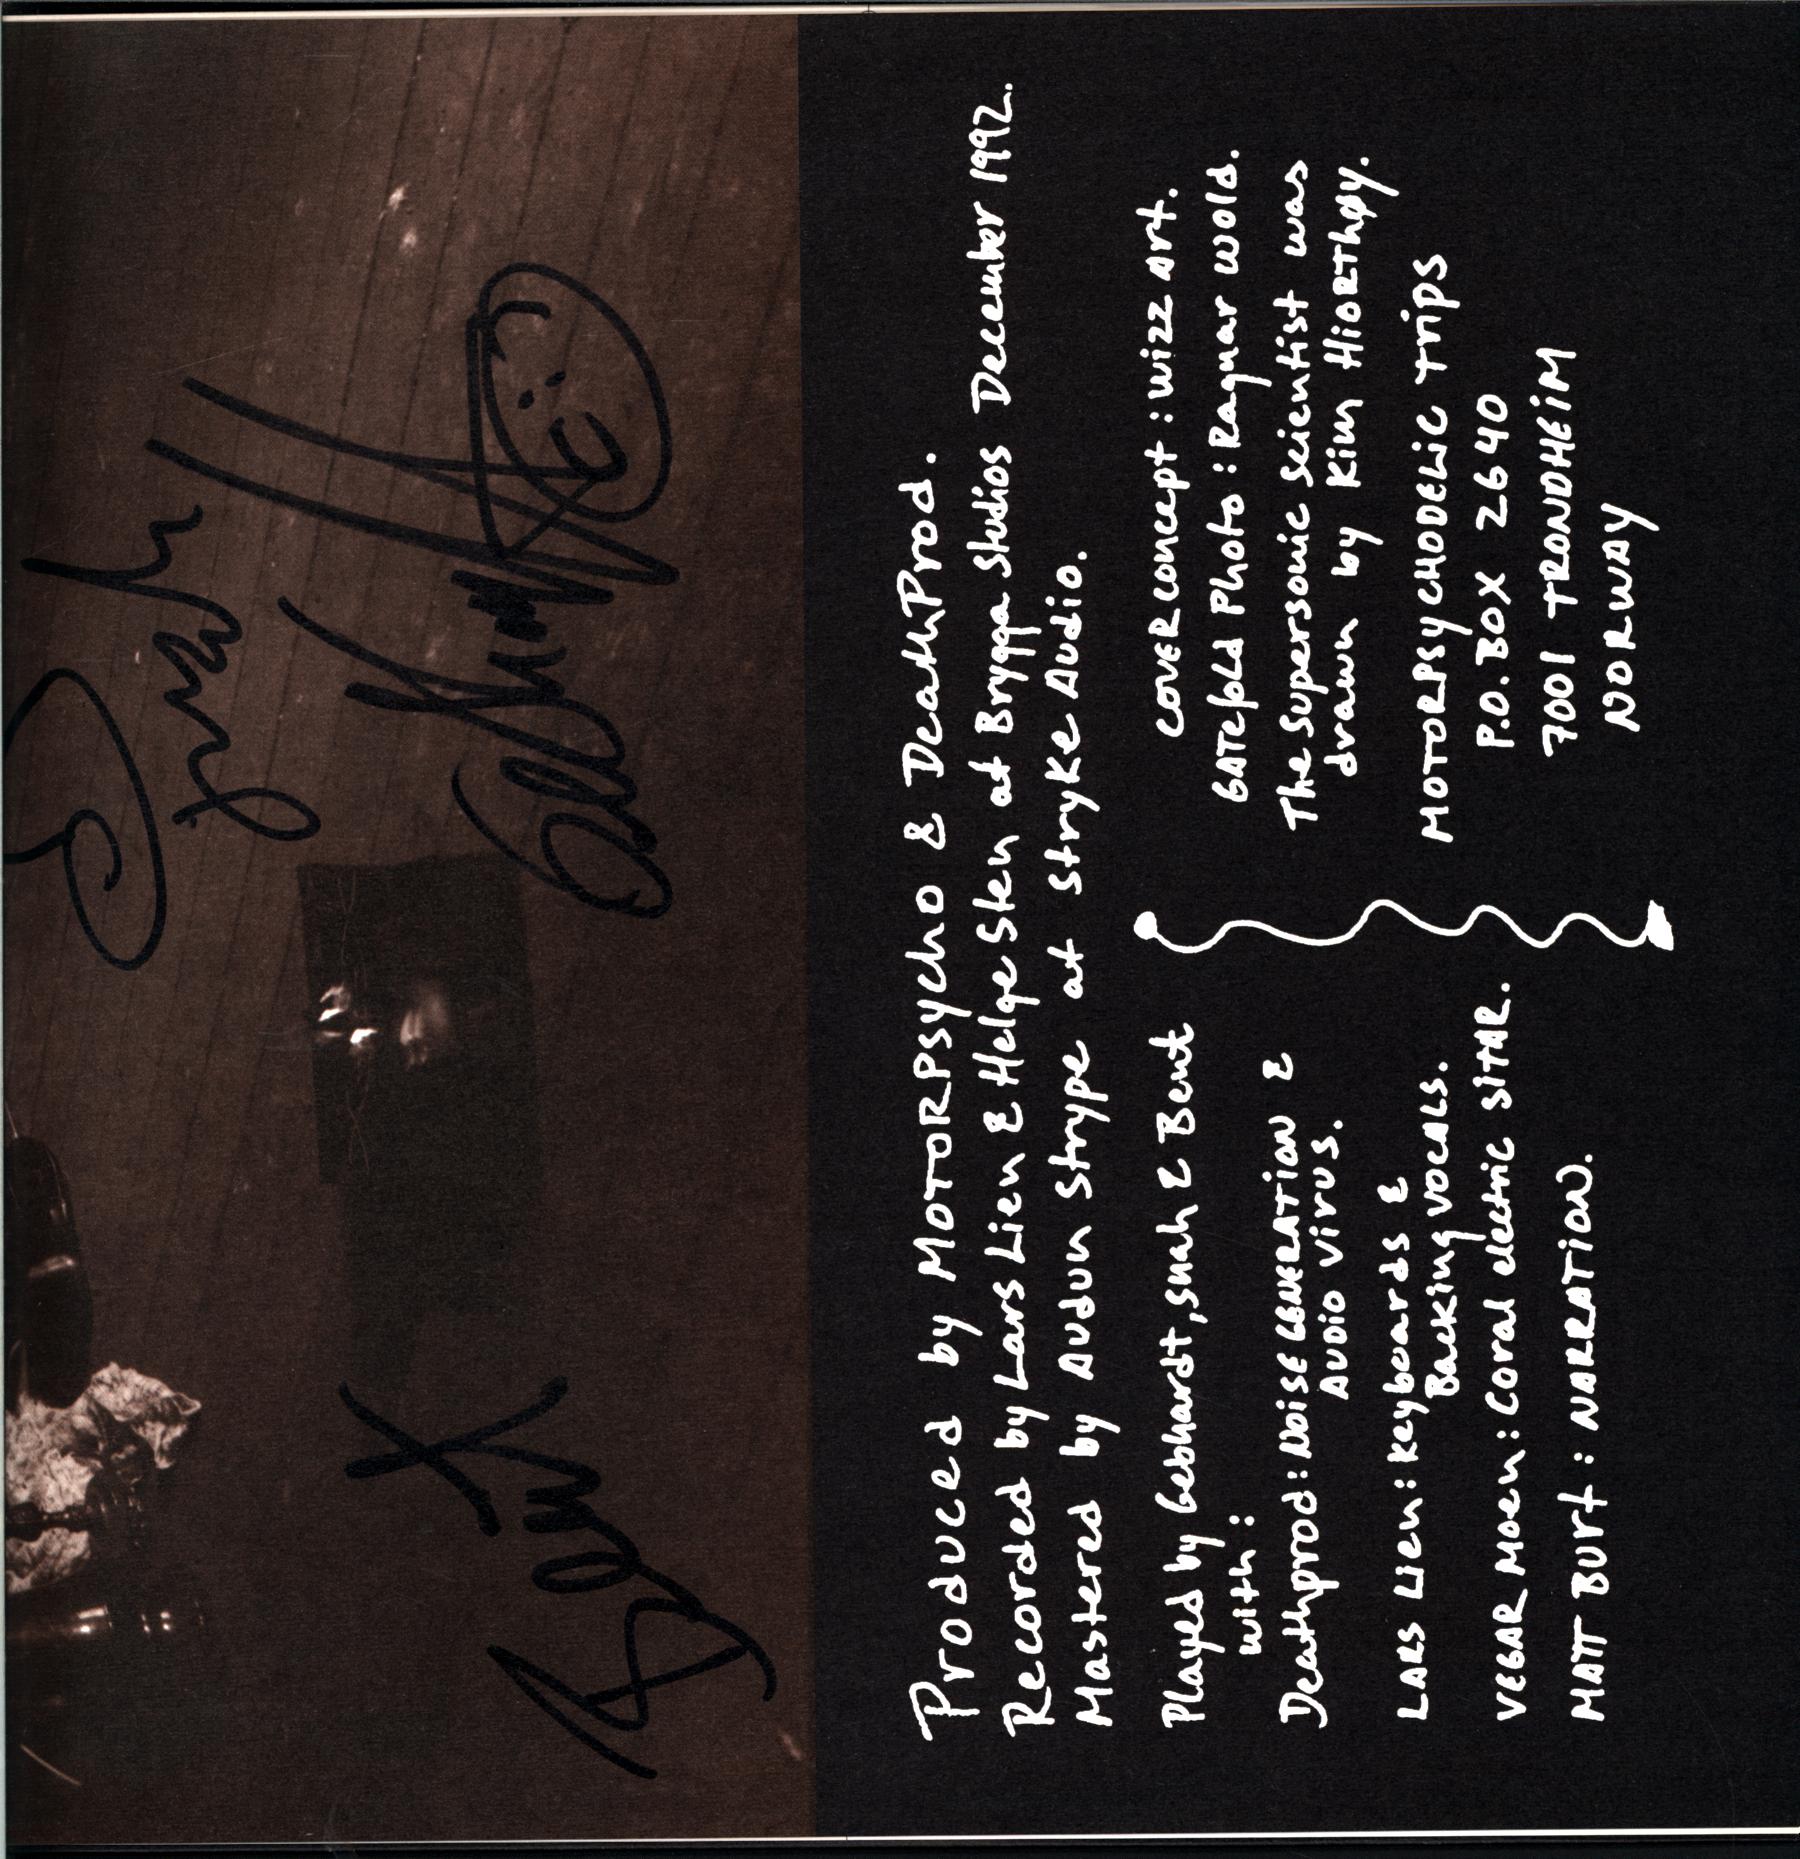 Snah
Gebhardt
Bent
Produced by MOTORPSYCHO & DeathProd.
Recorded by Lars Lien & Helge Sten at Brygga Studios December 1992.
Mastered by Audun Strype at Stryke Audio.
Played by Gebhardt, Snah & Bent
with:
Deathprod: NOISE GENERATION &
AUDIO VIRUS.
LARS LIEN: Keyboards &
Backing VOCALS.
VEGAR MOEN: Coral electric SITAR.
MATT BURT: NARRATION.
COVERCONCEPT: WIZZ ART.
GATEfold Photo: Ragnar Wold.
The Supersonic Scientist was
drawn by Kim HIORTHØY.
MOTORPSYCHODELIC TRIPS
P.O. BOX 2640
7001 TRONDHEIM
NORWAY